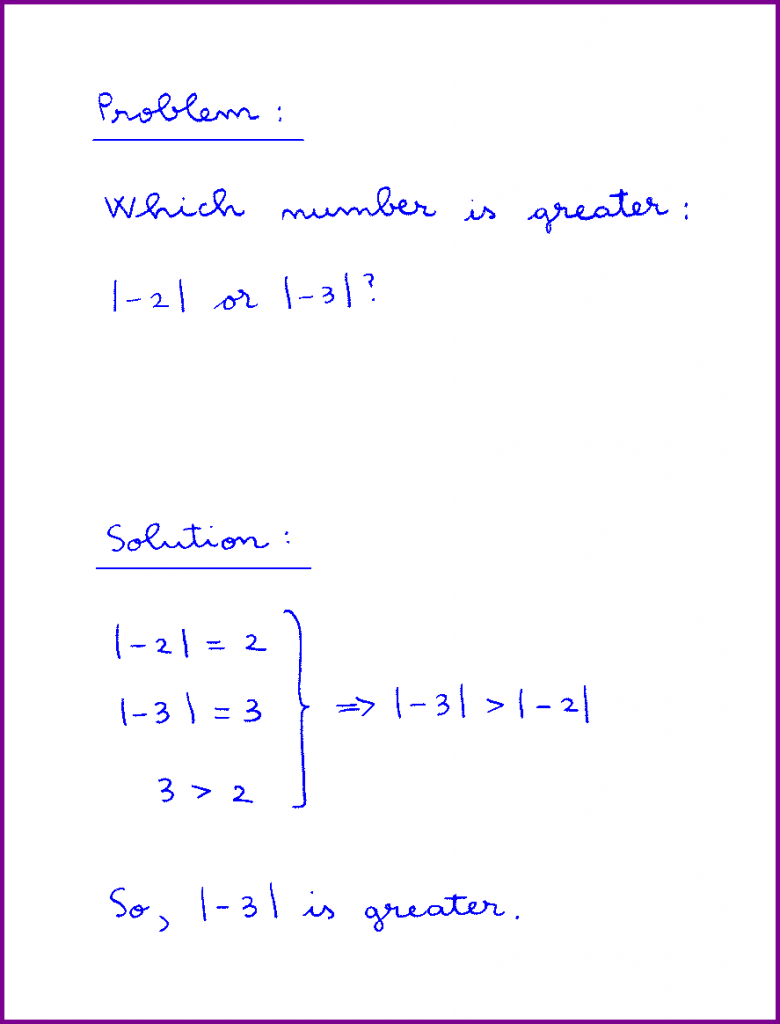 Problem :
Which number is greater :
|-2| or |-3|?
Solution :
|-2| = 2
|-3| = 3
3 > 2
=> |-3| > |-2|
So, |-3| is greater.